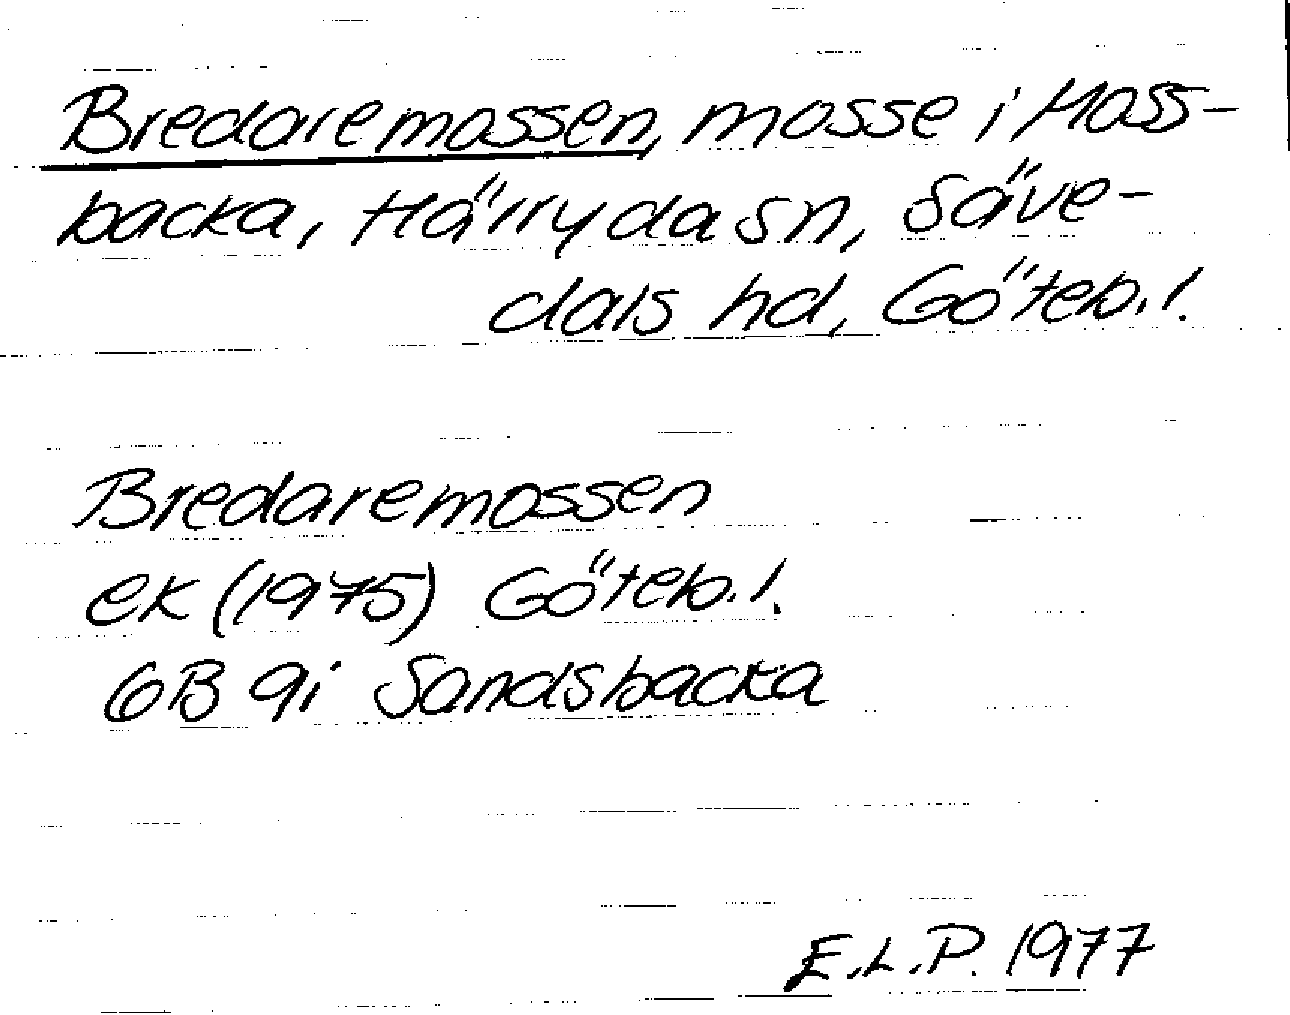 Bredaremossen, mosse i Moss-
backa, Härryda sn, Säve-
dals hd, Göteb. l.
Bredaremossen
ek (1975) Göteb. l.
6B 9i Sandsbacka
E.L.P. 1977